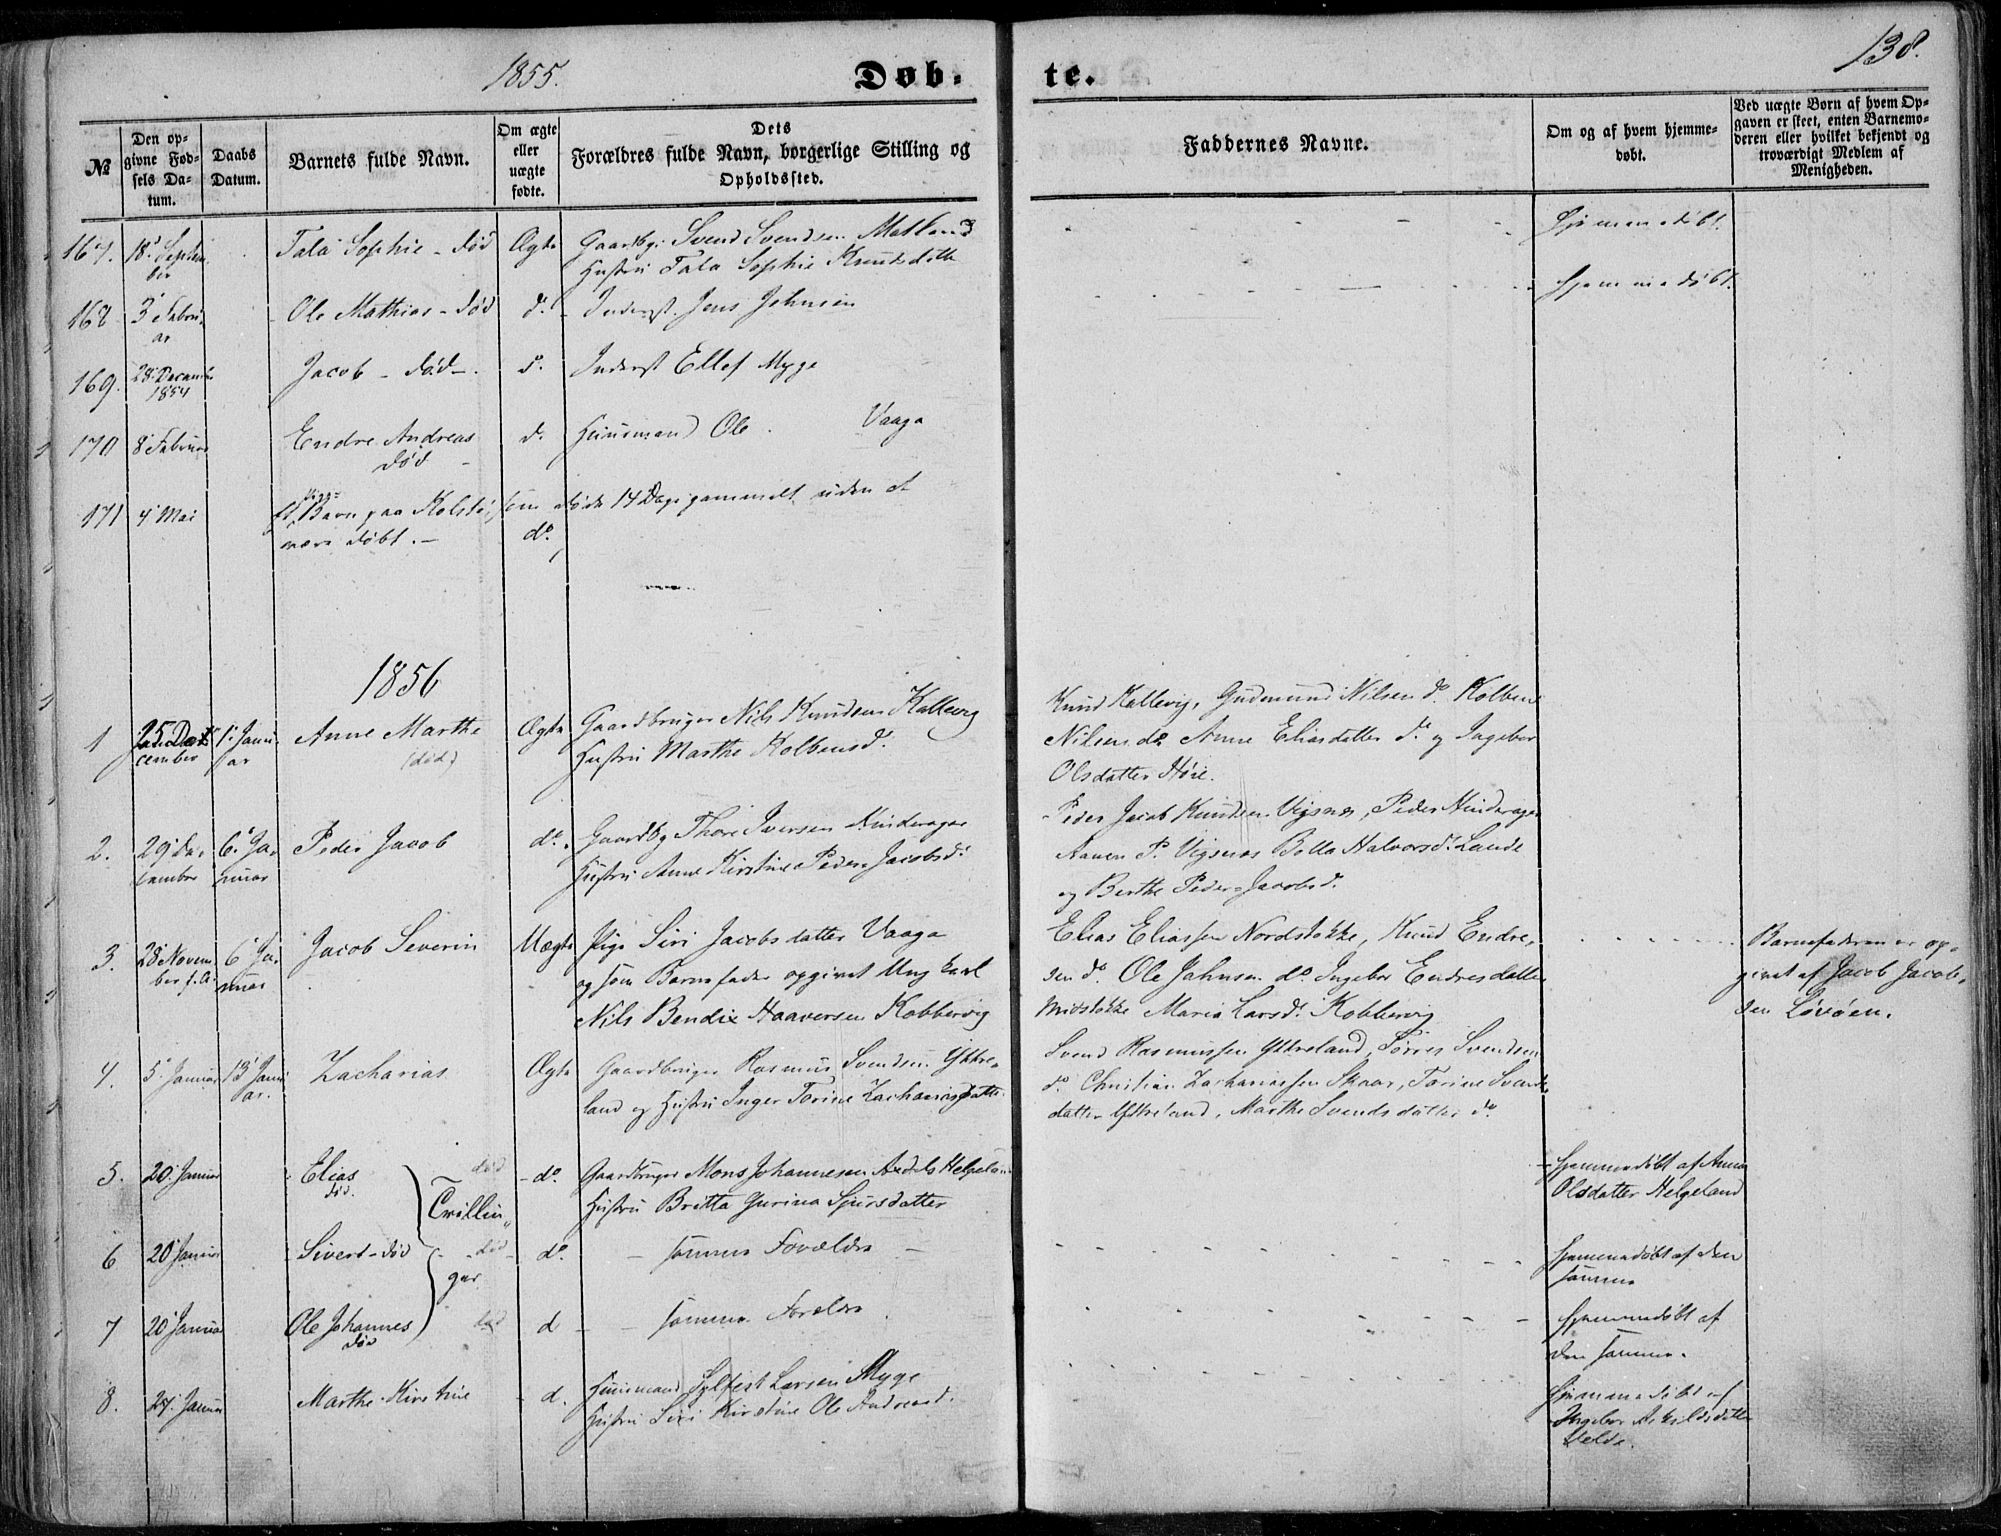 1855.
Døb-
te.
138.
No
Den op-
givne Fød-
sels Da-
tum.
Daabs
Datum.
Barnets fulde Navn.
Om ægte
eller
uægte
fødte.
Dets
Forældres fulde Navn, borgerlige Stilling og
Opholdssted.
Faddernes Navne.
Om og af hvem hjemme-
døbt.
Ved uægte Børn af hvem Op-
gaven er skeet, enten Barnemo-
deren eller hvilket bekjendt og
troværdigt Medlem af
Menigheden.
167. 18d Septem-
ber
Tala Sophie - død
Ægte
Gaardbr. Svend Svendsen Matland
Hustru Tala Sophie Knudsdatte
Hjemmedøbt.
168 3 Febru-
ar
Ole Mathias - død
do.
Inderst. Jens Johnsen
Hjemmedøbt.
169. 28 Decembr
1854
Jacob - død -.
do.
Inderst Ellef Myge
170 8 Februar
Endre Andreas
død -
d.
Huusmand Ole Vaaga
171 4 Mai
Et Pige-
Barn paa Kolstø, som døde 14 Dage gammelt uden at
være døbt. -
do.
1856
1 25 De-
cember
1 Janu-
ar
Anne Marthe
(død)
Ægte
Gaardbruger Nils Knudsen Kallevig
Hustru Marthe Kolbensd.
Knud Kallevig, Gudmund Nilsen do Kolben
Nilsen do Anne Eliasdatter do og Ingebor
Olsdatter Høie.
2. 29 De-
cember
6 Ja-
nuar
Peder Jacob
do.
Gaardbr Thore Iversen Hinderager
Hustru Anne Kirstine Peder-Jacobsd.
Peder Jacob Knudsen Vigsnes, Peder Hinderager
Aanen P. Vigsnes Bolla Halvorsd. Lande
og Berthe Peder-Jacobsd.
3. 28 Novem-
ber f. A.
6 Ja-
nuar
Jacob Severin
Uægte
Pige Siri Jacobsdatter Vaage
og som Barnefader opgivet Ung karl
Nils Bendix Haaversen Kobbervig
Elias Eliassen Nordstokke, Knud Endre-
sen do. Ole Johnsen do Ingebor Endresdatter
Midstokke Maria Larsd. Kobbervig
Barnefaderen er op-
givet af Jacob Jacob-
sen Løvøen.
4. 5 Januar
13 Janu-
ar.
Zacharias
Ægte
Gaardbruger Rasmus Svendsen Yttre-
land og Hustru Inger Torine Zachariasdatte
Svend Rasmussen Yttreland, Torres Svendsen
do. Christian Zachariassen Skaar, Torine Svends
datter Yttreland, Marthe Svendsdatter do
5. 20 Januar
Elias
død.
død
do.
Gaardbruger Mons Johannesen Helgeland
Hustru Britta Gurina Sjursdatter
Hjemmedøbt af Anna
Olsdatter Helgeland
Trillin-
ger.
6 20 Januar
Sivert - død
død
do.
samme Forældre
Hjemmedøbt af den
samme
7 20 Januar
Ole Johannes
død
død
d
samme Forældre
Hjemmedøbt af
den samme.
8. 24 Januar
Marthe Kirstine
d.
Huusmand Sylfest Larsen Myge
Hustru Siri Kirstine Ole Andreasd.
Hjemmedøbt af
Ingebor Askildsdatte
Velde.